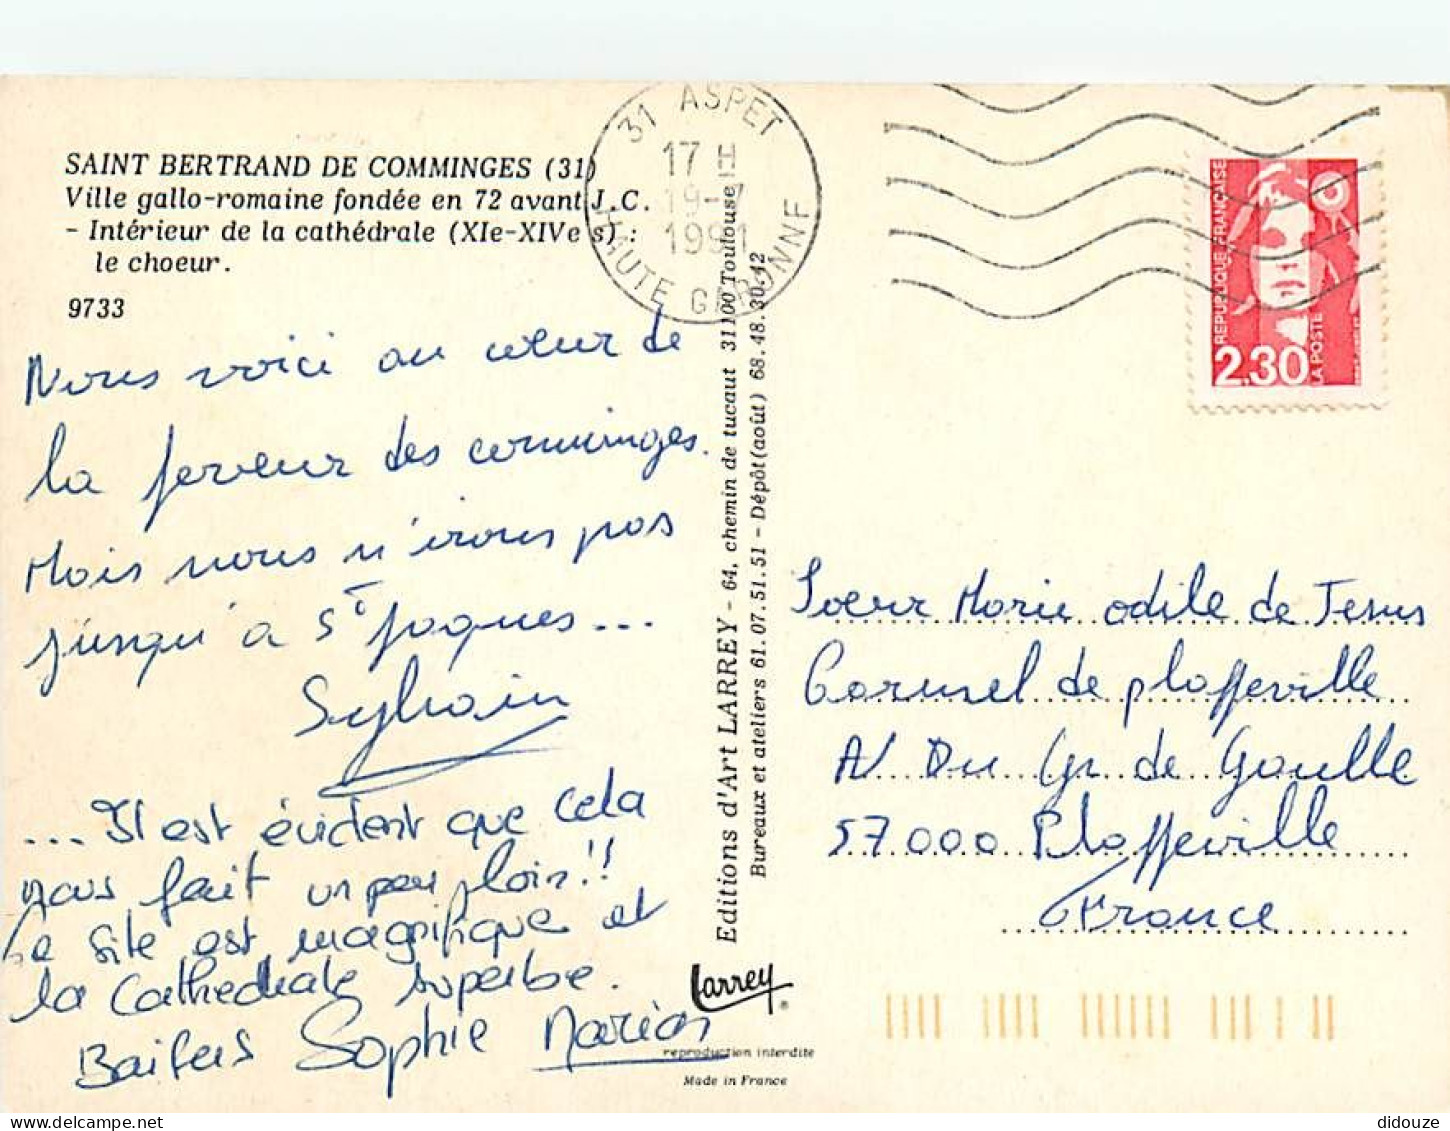 SAINT BERTRAND DE COMMINGES (31)
Ville gallo-romaine fondée en 72 avant J.C.
- Intérieur de la cathédrale (XIe-XIVe s) :
le choeur.
9733
31 ASPET
17 H
19-7
1991
HAUTE GARONNE
REPUBLIQUE FRANÇAISE
2,30
LA POSTE
Nous voici au cœur de
la ferveur des comminges.
Mais nous n'irons pas
jusqu'à St Jaques...
Sylvain
... Il est évident que cela
nous fait un peu loin!!
Le site est magnifique et
la Cathedrale superbe.
Baisers Sophie Marion
Editions d'Art LARREY - 64, chemin de tucaut 31100 Toulouse
Bureaux et ateliers 61.07.51.51 - Dépôt (août) 68.48.30.42
Larrey
®
reproduction interdite
Made in France
Soeur Marie odile de Jesus
Carmel de plaffeville
AV Du Gr de Gaulle
57000 Plaffeville
France
didouze